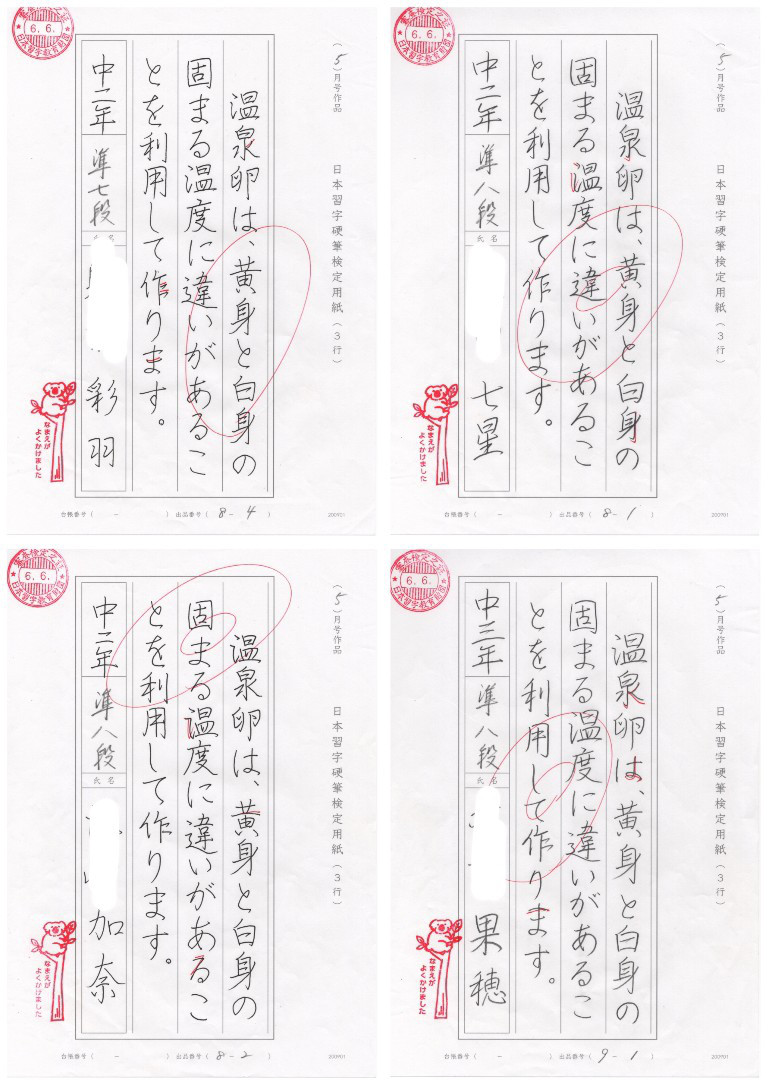 (5)月号作品
日本習字硬筆検定用紙(3行)
温泉卵は、黄身と白身の
固まる温度に違いがあるこ
とを利用して作ります。
中二年
準七段
氏名
彩羽
なまえが
よくかけました
6.6.
日本習字教育財団
台帳番号( - )
出品番号(8-4)
200901
(5)月号作品
日本習字硬筆検定用紙(3行)
温泉卵は、黄身と白身の
固まる温度に違いがあるこ
とを利用して作ります。
中二年
準八段
氏名
七星
なまえが
よくかけました
6.6.
日本習字教育財団
台帳番号( - )
出品番号(8-1)
200901
(5)月号作品
日本習字硬筆検定用紙(3行)
温泉卵は、黄身と白身の
固まる温度に違いがあるこ
とを利用して作ります。
中二年
準八段
氏名
加奈
なまえが
よくかけました
6.6.
日本習字教育財団
台帳番号( - )
出品番号(8-2)
200901
(5)月号作品
日本習字硬筆検定用紙(3行)
温泉卵は、黄身と白身の
固まる温度に違いがあるこ
とを利用して作ります。
中三年
準八段
氏名
果穂
なまえが
よくかけました
6.6.
日本習字教育財団
台帳番号( - )
出品番号(9-1)
200901